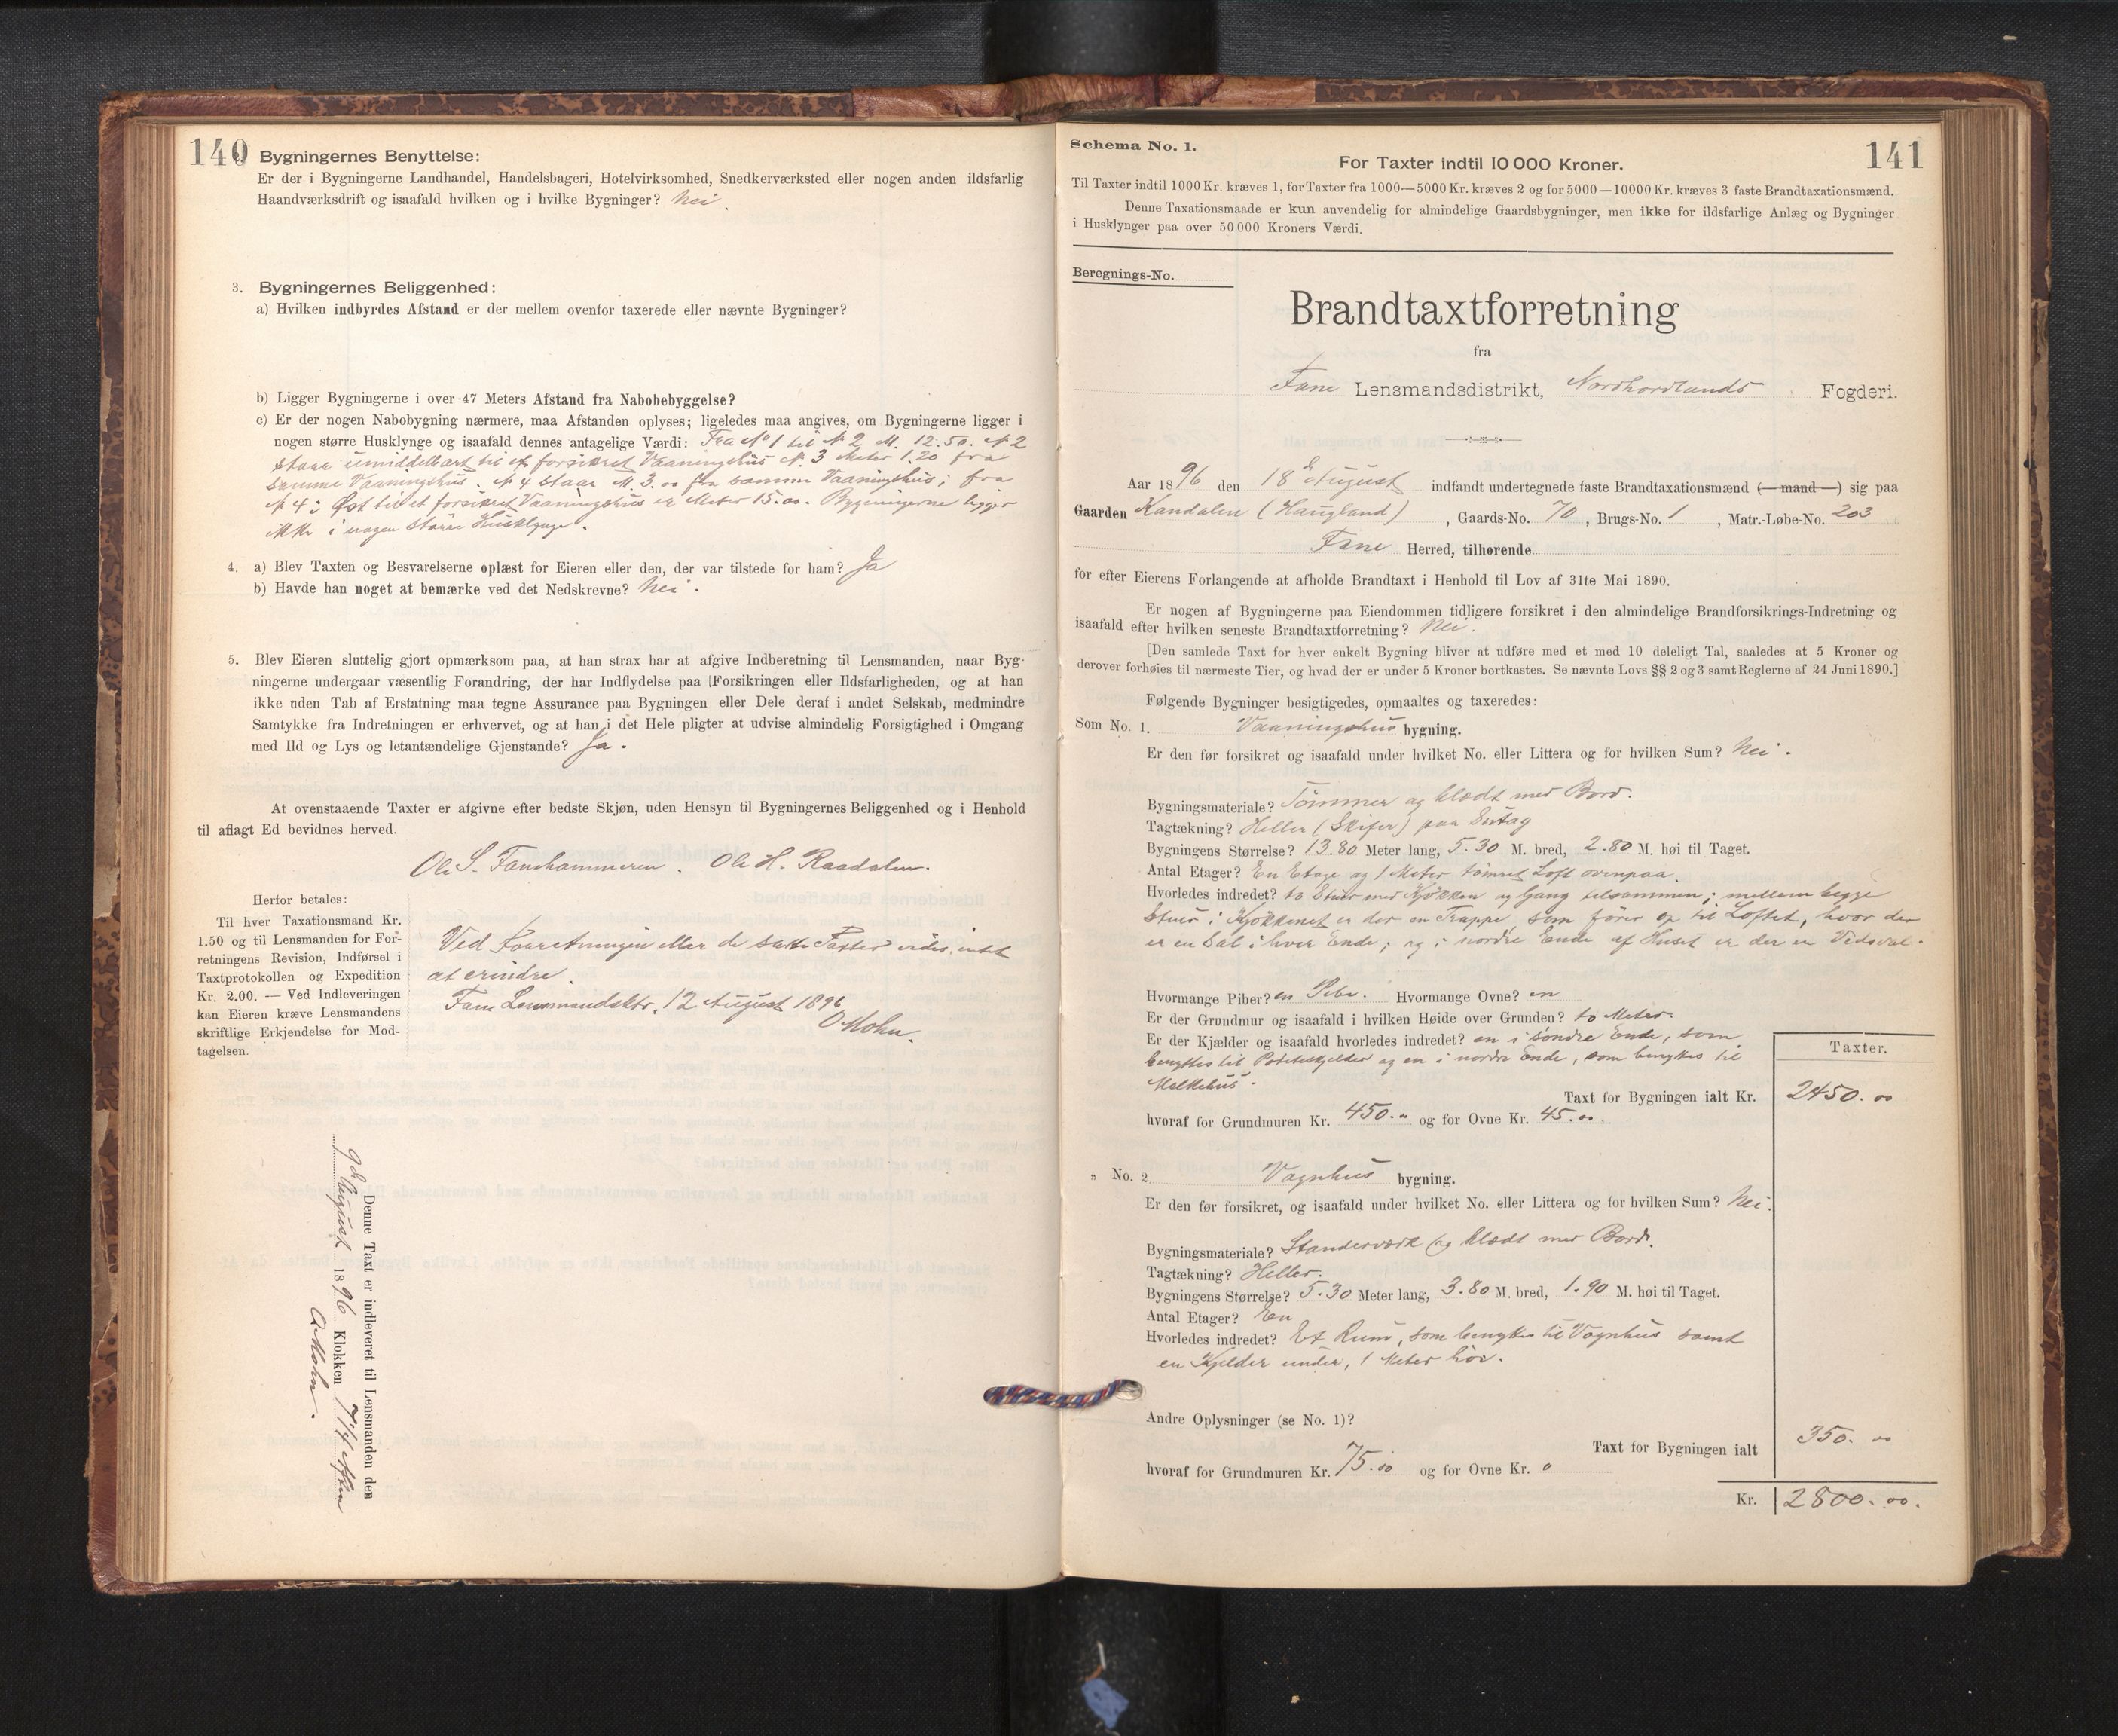 140
Bygningernes Benyttelse:
Er der i Bygningerne Landhandel, Handelsbageri, Hotelvirksomhed, Snedkerværksted eller nogen anden ildsfarlig
Haandværksdrift og isaafald hvilken og i hvilke Bygninger? Nei.
3. Bygningernes Beliggenhed:
a) Hvilken indbyrdes Afstand er der mellem ovenfor taxerede eller nævnte Bygninger?
b) Ligger Bygningerne i over 47 Meters Afstand fra Nabobebyggelse?
c) Er der nogen Nabobygning nærmere, maa Afstanden oplyses; ligeledes maa angives, om Bygningerne ligger i
nogen større Husklynge og isaafald dennes antagelige Værdi: Fra No 1 til N 2 M. 12.50. N 2
staar umiddelbart til et forsikret Vaaningshus N. 3 Meter 1.20 fra
samme Vaaningshus. N 4 staar M. 3.00 fra samme Vaaningshus; fra
N 4 i Øst til et forsikret Vaaningshus er Meter 15.00. Bygningerne ligger
ikke i nogen større Husklynge.
4. a) Blev Taxten og Besvarelserne oplæst for Eieren eller den, der var tilstede for ham? Ja
b) Havde han noget at bemærke ved det Nedskrevne? Nei.
5. Blev Eieren sluttelig gjort opmærksom paa, at han strax har at afgive Indberetning til Lensmanden, naar Byg-
ningerne undergaar væsentlig Forandring, der har Indflydelse paa Forsikringen eller Ildsfarligheden, og at han
ikke uden Tab af Erstatning maa tegne Assurance paa Bygningen eller Dele deraf i andet Selskab, medmindre
Samtykke fra Indretningen er erhvervet, og at han i det Hele pligter at udvise almindelig Forsigtighed i Omgang
med Ild og Lys og letantændelige Gjenstande? Ja.
At ovenstaaende Taxter er afgivne efter bedste Skjøn, uden Hensyn til Bygningernes Beliggenhed og i Henhold
til aflagt Ed bevidnes herved.
Ole S. Fanehammeren. Ole H. Raadalen.
Herfor betales:
Til hver Taxationsmand Kr.
1.50 og til Lensmanden for For-
retningens Revision, Indførsel i
Taxtprotokollen og Expedition
Kr. 2.00. — Ved Indleveringen
kan Eieren kræve Lensmandens
skriftlige Erkjendelse for Mod-
tagelsen.
Ved Forretningen eller de satte Taxter vides intet
at erindre.
Fane Lensmandsktr. 12 August 1896
O Mohn.
Denne Taxt er indleveret til Lensmanden den
9de August 1896 Klokken 7 1/4 Aften
O Mohn.
Schema No. 1.
141
For Taxter indtil 10 000 Kroner.
Til Taxter indtil 1000 Kr. kræves 1, for Taxter fra 1000—5000 Kr. kræves 2 og for 5000—10000 Kr. kræves 3 faste Brandtaxationsmænd.
Denne Taxationsmaade er kun anvendelig for almindelige Gaardsbygninger, men ikke for ildsfarlige Anlæg og Bygninger
i Husklynger paa over 50 000 Kroners Værdi.
Beregnings-No.
Brandtaxtforretning
fra
Fane Lensmandsdistrikt, Nordhordlands Fogderi.
Aar 1896 den 18 August indfandt undertegnede faste Brandtaxationsmænd (— mand —) sig paa
Gaarden Kandalen (Haugland), Gaards-No. 70, Brugs-No. 1, Matr.-Løbe-No. 203
Fane Herred, tilhørende
for efter Eierens Forlangende at afholde Brandtaxt i Henhold til Lov af 31te Mai 1890.
Er nogen af Bygningerne paa Eiendommen tidligere forsikret i den almindelige Brandforsikrings-Indretning og
isaafald efter hvilken seneste Brandtaxtforretning? Nei.
[Den samlede Taxt for hver enkelt Bygning bliver at udføre med et med 10 deleligt Tal, saaledes at 5 Kroner og
derover forhøies til nærmeste Tier, og hvad der er under 5 Kroner bortkastes. Se nævnte Lovs §§ 2 og 3 samt Reglerne af 24 Juni 1890.]
Følgende Bygninger besigtigedes, opmaaltes og taxeredes:
Som No. 1. Vaaningshus bygning.
Er den før forsikret og isaafald under hvilket No. eller Littera og for hvilken Sum? Nei.
Bygningsmateriale? Tømmer og klædt med Bord.
Tagtækning? Heller (Skifer) paa Sutag
Bygningens Størrelse? 13.80 Meter lang, 5.30 M. bred, 2.80 M. høi til Taget.
Antal Etager? En Etage og 1 Meter tømret Loft ovenpaa.
Hvorledes indredet? to Stuer med Kjøkken og Gang tilsammen; mellem begge
Stuer i Kjøkkenet er der en Trappe som fører op til Loftet, hvor der
er en Sal i hver Ende; og i nordre Ende af Huset er der en Vedsval.
Hvormange Piber? en Pibe. Hvormange Ovne? en
Er der Grundmur og isaafald i hvilken Høide over Grunden? to Meter.
Er der Kjælder og isaafald hvorledes indredet? en i søndre Ende, som
benyttes til Poteteskjelder og en i nordre Ende, som benyttes til
Melkehus.
Taxter.
Taxt for Bygningen ialt Kr. 2450.00
hvoraf for Grundmuren Kr. 450.00 og for Ovne Kr. 45.00.
„ No. 2 Vognhus bygning.
Er den før forsikret, og isaafald under hvilket No. eller Littera og for hvilken Sum? Nei.
Bygningsmateriale? Standerværk og klædt med Bord.
Tagtækning? Heller.
Bygningens Størrelse? 5.30 Meter lang, 3.80 M. bred, 1.90 M. høi til Taget.
Antal Etager? En
Hvorledes indredet? Et Rum, som benyttes til Vognhus samt
en Kjelder under, 1 Meter høi.
Andre Oplysninger (se No. 1)?
Taxt for Bygningen ialt 350.00
hvoraf for Grundmuren Kr. 75.00 og for Ovne Kr. 0
Kr. 2800.00.